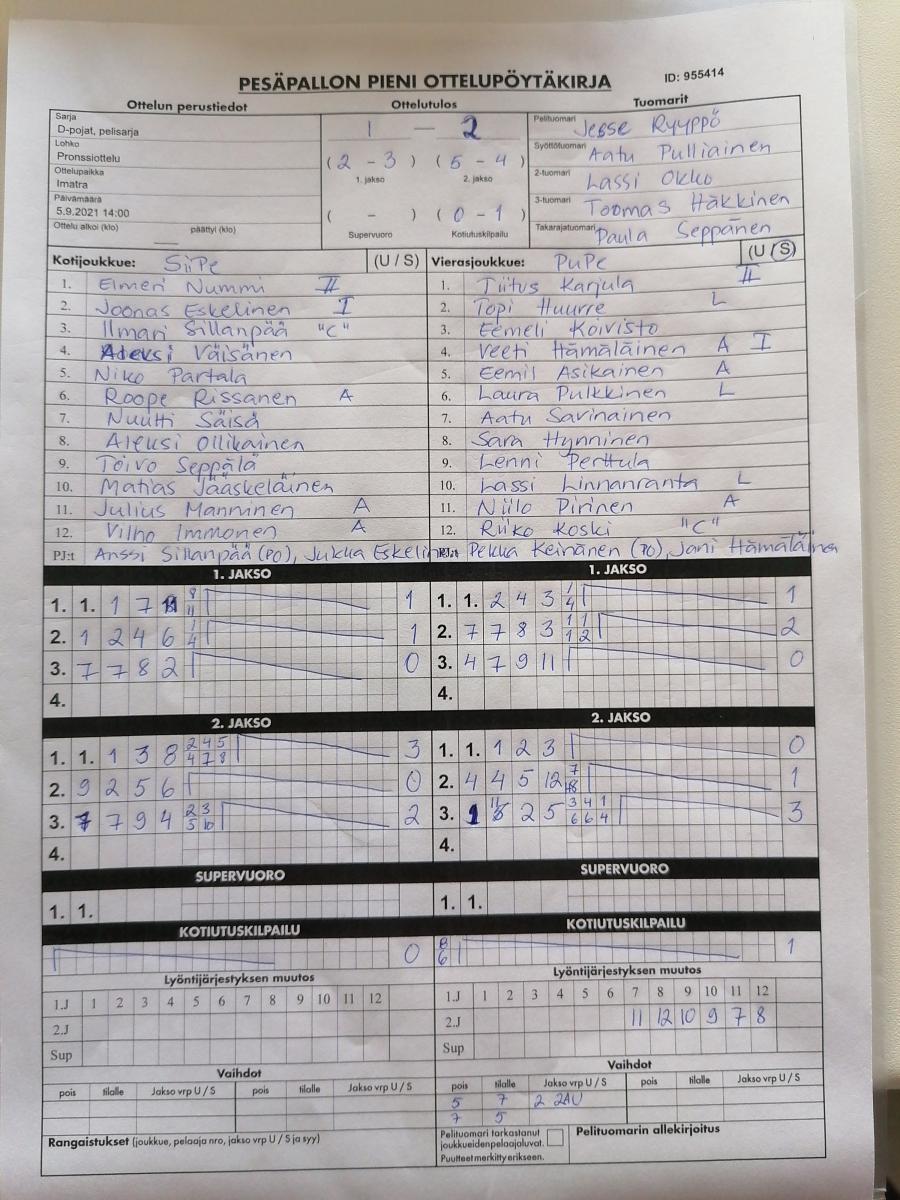 PESÄPALLON PIENI OTTELUPÖYTÄKIRJA ID: 955414
Ottelun perustiedot Ottelutulos Tuomarit
Sarja
D-pojat, pelisarja
Lohko
Pronssiottelu
Ottelupaikka
Imatra
Päivämäärä
5.9.2021 14:00
Ottelu alkoi (klo) päättyi (klo)
1 — 2
(2 - 3) (5 - 4)
1. jakso 2. jakso
( - ) (0 - 1)
Supervuoro Kotiutuskilpailu
Pelituomari Jesse Ryyppö
Syöttötuomari Aatu Pulliainen
2-tuomari Lassi Okko
3-tuomari Toomas Häkkinen
Takarajatuomari Paula Seppänen
Kotijoukkue: SiiPe (U / S)
1. Elmeri Nummi II
2. Joonas Eskelinen I
3. Ilmari Sillanpää "C"
4. Väisänen
5. Niko Partala
6. Roope Rissanen A
7. Nuutti Säisä
8. Aleksi Ollikainen
9. Toivo Seppälä
10. Matias Jääskeläinen
11. Julius Manninen A
12. Vilho Immonen A
PJ:t Anssi Sillanpää (PO), Jukka Eskelinen
Vierasjoukkue: PuPe (U / S)
1. Tiitus Karjula II
2. Topi Huurre L
3. Eemeli Koivisto
4. Veeti Hämäläinen A I
5. Eemil Asikainen A
6. Laura Pulkkinen L
7. Aatu Savinainen
8. Sara Hynninen
9. Lenni Perttula
10. Lassi Linnanranta L
11. Niilo Pirinen A
12. Riiko Koski "C"
PJ:t Pekka Keinänen (PO), Jani Hämäläinen
1. JAKSO
1. 1. 1 7 8 11 1
2. 1 2 4 6 1 4 1
3. 7 7 8 2 0
4.
1. JAKSO
1. 1. 2 4 3 1 4 1
2. 7 7 8 3 1 1 1 2 2
3. 4 7 9 11 0
4.
2. JAKSO
1. 1. 1 3 8 2 4 5 4 7 8 3
2. 9 2 5 6 0
3. 7 7 9 4 2 3 5 10 2
4.
2. JAKSO
1. 1. 1 2 3 0
2. 4 4 5 12 7 1
3. 1 11 2 5 3 4 1 6 6 4 3
4.
SUPERVUORO
1. 1.
SUPERVUORO
1. 1.
KOTIUTUSKILPAILU
0
KOTIUTUSKILPAILU
8 6 1
Lyöntijärjestyksen muutos
1.J 1 2 3 4 5 6 7 8 9 10 11 12
2.J
Sup
Lyöntijärjestyksen muutos
1.J 1 2 3 4 5 6 7 8 9 10 11 12
2.J 11 12 10 9 7 8
Sup
Vaihdot
pois tilalle Jakso vrp U / S pois tilalle Jakso vrp U / S
Vaihdot
pois tilalle Jakso vrp U / S pois tilalle Jakso vrp U / S
5 7 2 2AU
7 5
Rangaistukset (joukkue, pelaaja nro, jakso vrp U / S ja syy)
Pelituomari tarkastanut
joukkueiden pelaajaluvat.
Puutteet merkitty erikseen.
Pelituomarin allekirjoitus